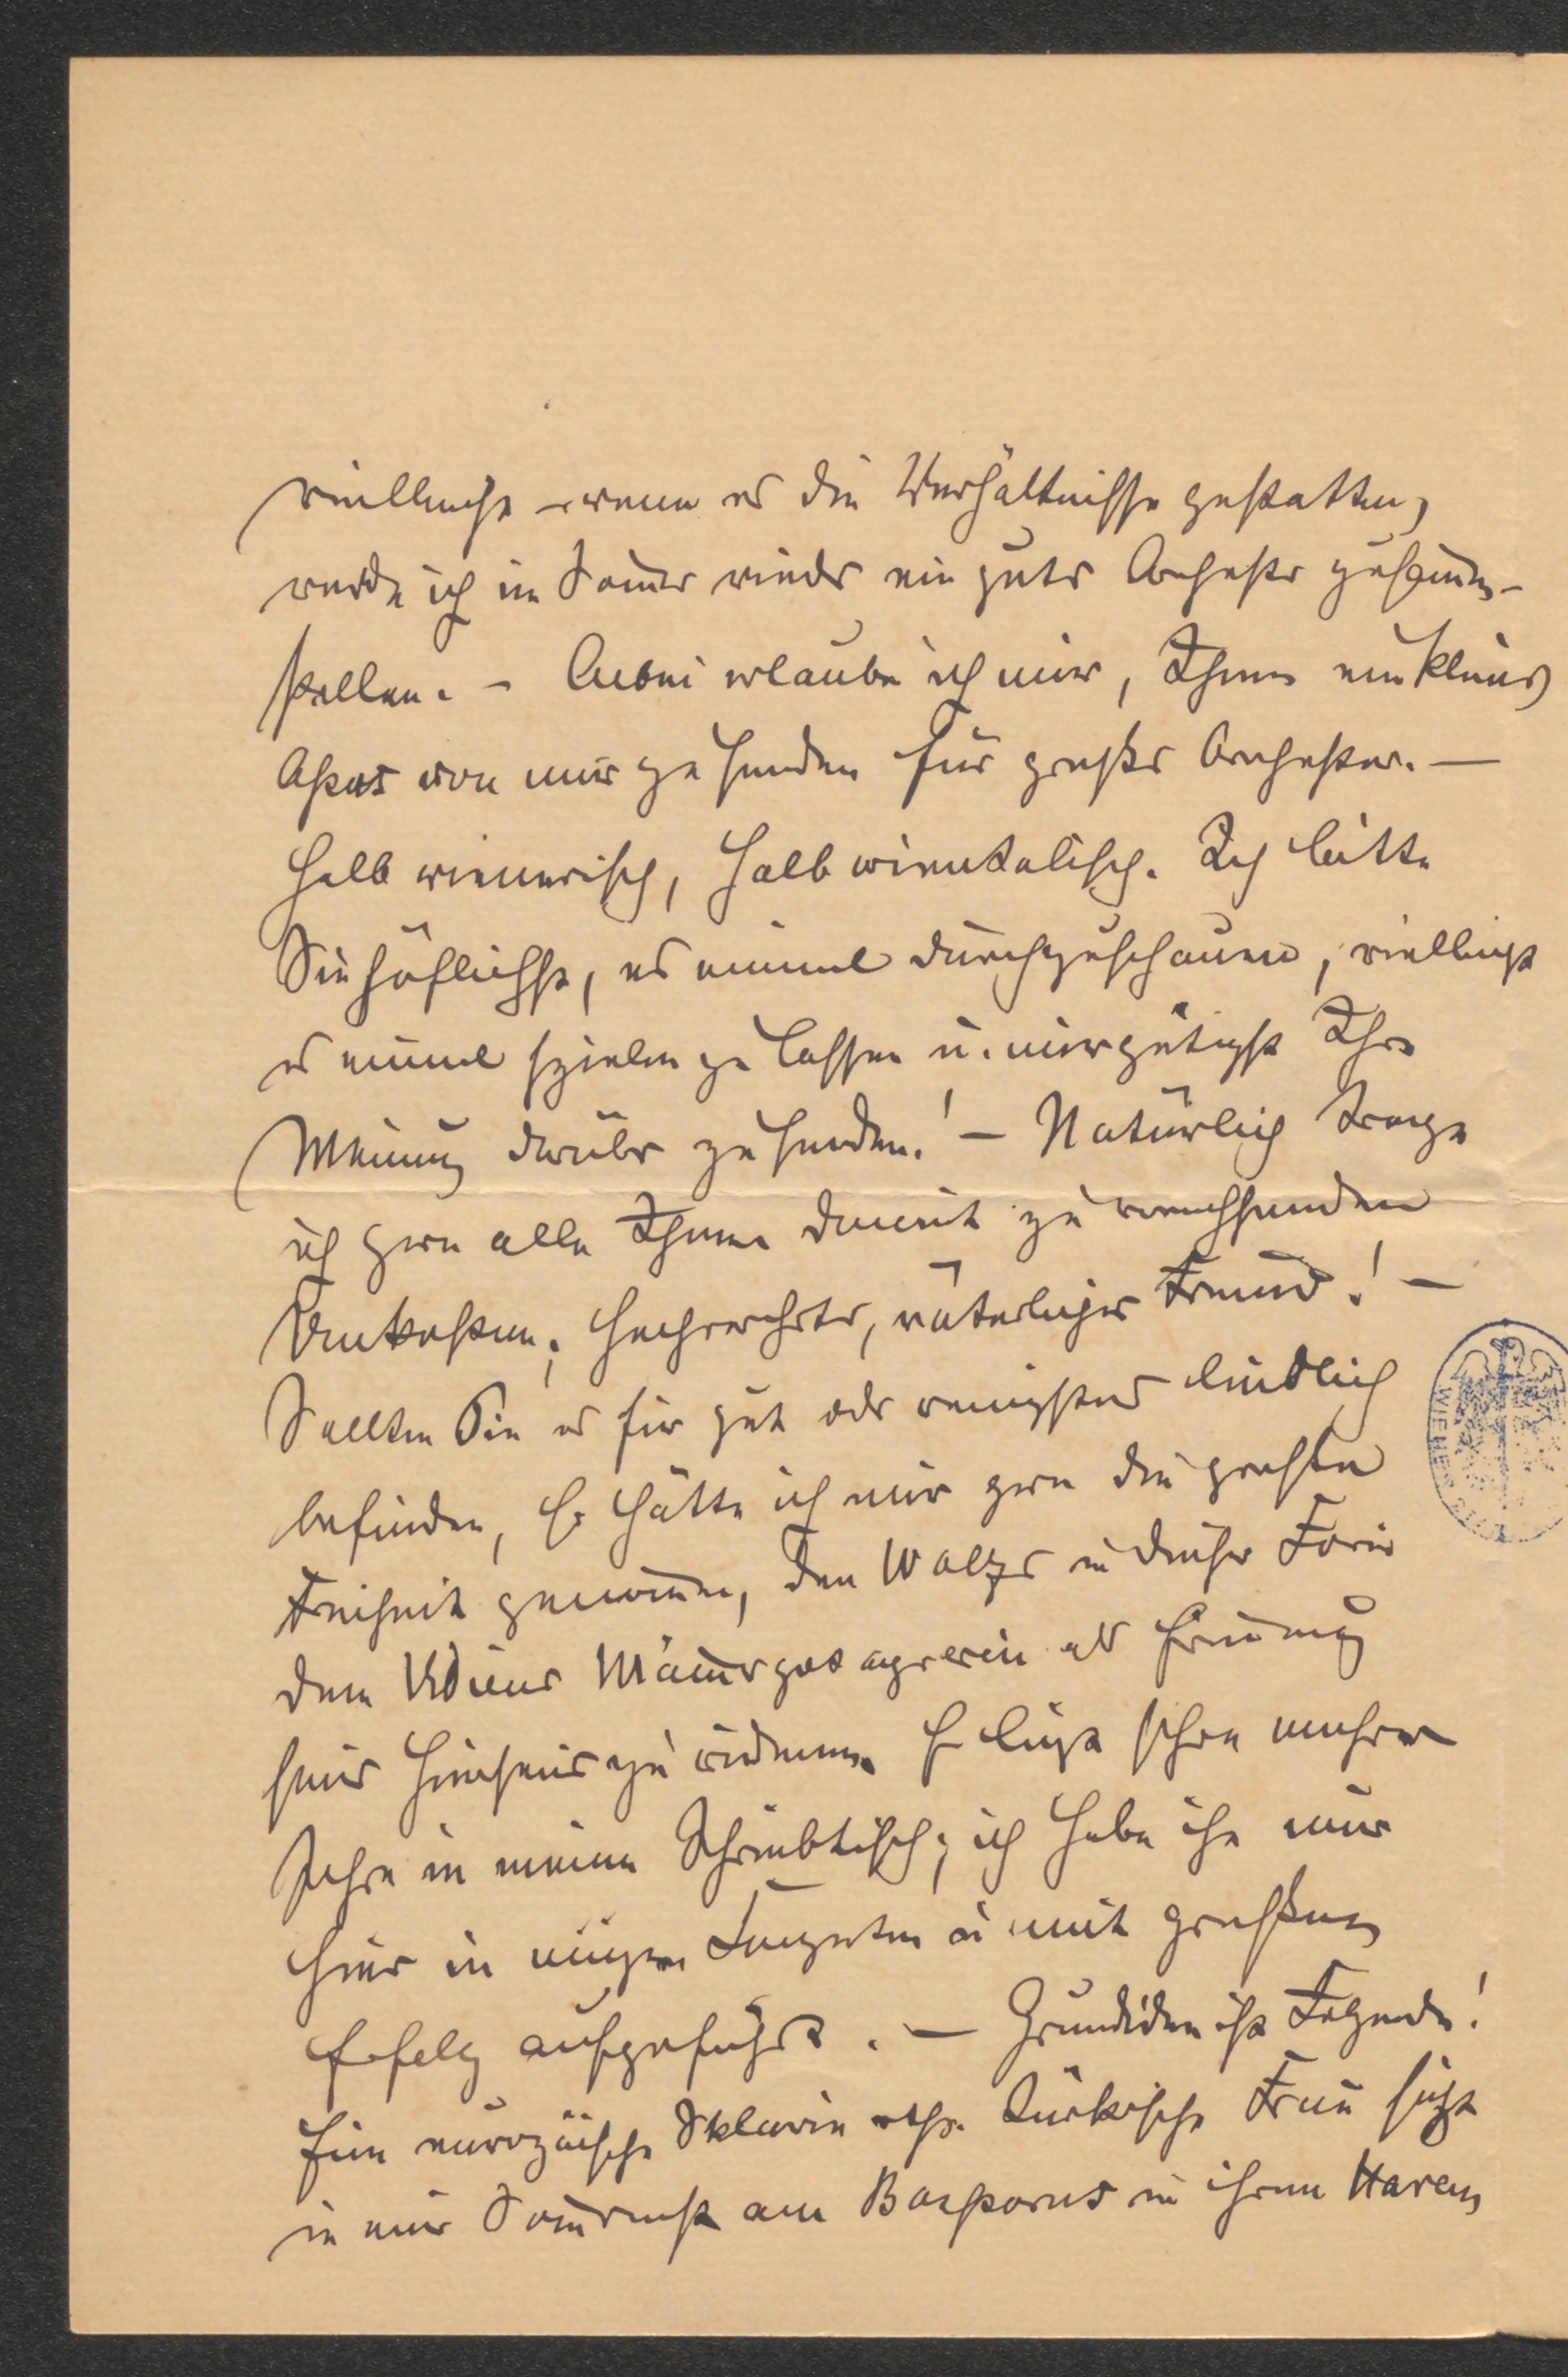 vielleicht – wenn es die Verhältnisse gestatten,
werde ich im Somer wieder ein gutes Orchester zusamen-
stellen. – Anbei erlaube ich mir, Ihnen ein kleines
Opus von mir zu senden für großes Orchester. –
halb wienerisch, halb orientalisch. Ich bitte
Sie höflichst, es einmal durchzuschauen, vielleicht
es einmal spielen zu lassen u. mir gütigst Ihre
Meinung darüber zu senden! – Natürlich trage
ich gern alle Ihnen damit zu erwachsenden
Unkosten, hochverehrter, väterlicher Freund! –
Sollten Sie es für gut oder wenigstens leidlich
befinden, so hätte ich mir gern die große
Freiheit genomen, den Walzer in dieser Form
dem Wiener Mänergesangverein als Erinnerung
seines Hierseins zu widmen. Er liegt schon mehrere
Jahre in meinem Schreibtisch; ich habe ihn nur
hier in einigen Konzerten u. mit großem
Erfolg aufgeführt. – Grundidee ist Folgende!
Eine europäische Sklavin resp. türkische Frau sitzt
in einer Somernacht am Bosporus in ihrem Harem